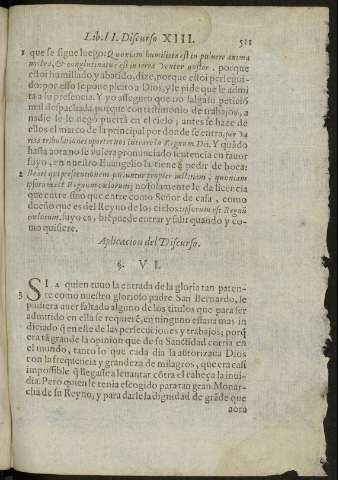 Lib. II. Discurso XIII. 511
1 que se sigue luego: Quoniam humiliata est in puluere anima
nostra, & conglutinatus est in terra venter noster, porque
estoi humillado y abatido, dize, porque estoi persegui-
do: por esso se pone pleito a Dios, y le pide que le admi
ta a su presencia. Y yo asseguro que no salga su peticiõ
mal despachada, porque con testimonio de trabajos, a
nadie se le negò puerta en el cielo; antes se haze de
ellos el marco de la principal por donde se entra, per va
rias tribulationes oportet nos intrare in Regnum Dei. Y quãdo
hasta aora no le vuiera pronunciado sentencia en fauor
suyo, en nuestro Euangelio la tiene à pedir de boca:
2 Beati qui persecutionem patiuntur propter iustitiam, quoniam
ipsorum est Regnum cœlorum; no solamente le da licencia
que entre sino que entre como Señor de casa, como
dueño que es del Reyno de los cielos: ipsorum est Regnũ
cœlorum, suyo es, biẽ puede entrar y salir quando y co-
mo quisiere.
Aplicacion del Discurso.
§. VI.
3 SI a quien tuuo la entrada de la gloria tan paten-
te como nuestro glorioso padre San Bernardo, le
pudiera auer faltado alguno de los titulos que para ser
admitido en ella se requierẽ, en ninguno estaua mas in
diciado q̃ en este de las persecuciones y trabajos; porq̃
era tã grande la opinion que de su Sanctidad corria en
el mundo, tanto lo que cada dia la autorizaua Dios
con la frequencia y grandeza de milagros, que era casi
impossible q̃ llegasse a leuantar cõtra el cabeça la inui-
dia. Pero quien le tenia escogido para tan gran Monar-
cha de su Reyno, y para darle la dignidad de grãde que
aora